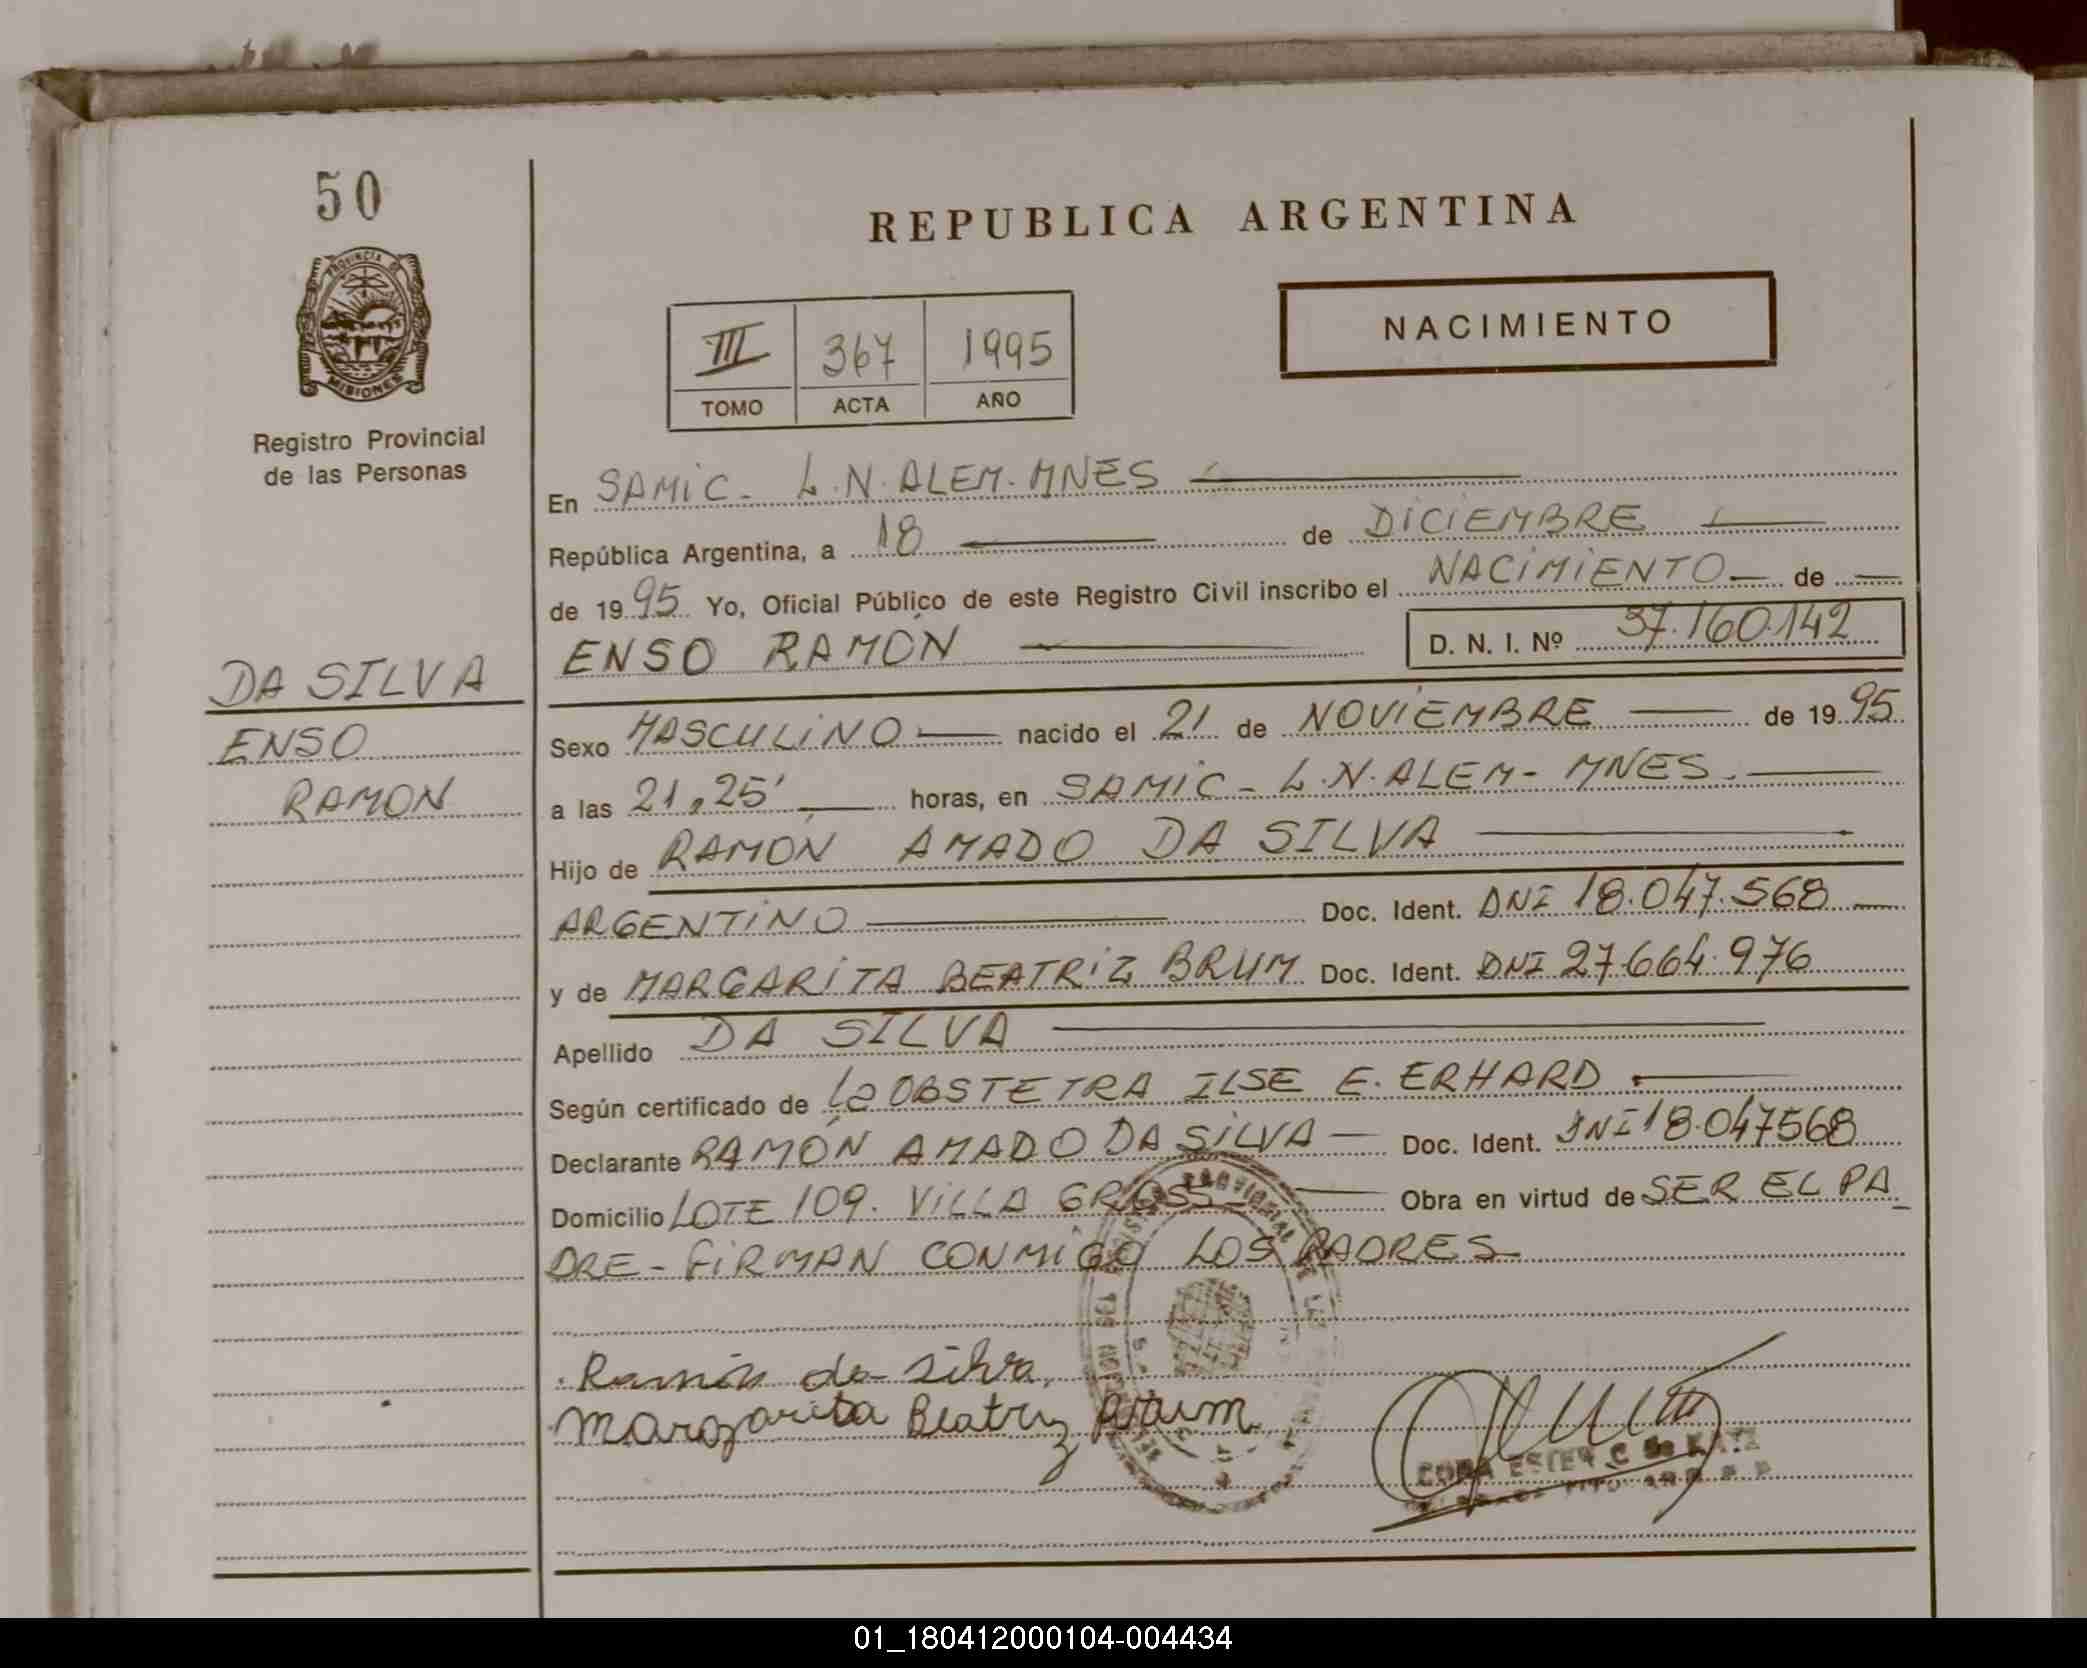 50
PROVINCIA DE
MISIONES
Registro Provincial
de las Personas
REPUBLICA ARGENTINA
III 367 1995
TOMO ACTA AÑO
NACIMIENTO
En SAMIC - L.N. ALEM - MNES
República Argentina, a 18 de DICIEMBRE
de 1995 Yo, Oficial Público de este Registro Civil inscribo el NACIMIENTO de
ENSO RAMÓN D. N. I. Nº 37.160.142
DA SILVA
ENSO
RAMON
Sexo MASCULINO nacido el 21 de NOVIEMBRE de 1995
a las 21,25' horas, en SAMIC - L.N. ALEM - MNES.
Hijo de RAMÓN AMADO DA SILVA
ARGENTINO Doc. Ident. DNI 18.047.568
y de MARGARITA BEATRIZ BRUM Doc. Ident. DNI 27.664.976
Apellido DA SILVA
Según certificado de La OBSTETRA ILSE E. ERHARD.
Declarante RAMÓN AMADO DA SILVA Doc. Ident. DNI 18.047568
Domicilio LOTE 109. VILLA GROSS Obra en virtud de SER EL PA
DRE - FIRMAN CONMIGO LOS PADRES
Ramón da silva
Margarita Beatriz Brum
ESTER C de KATZ
01_180412000104-004434